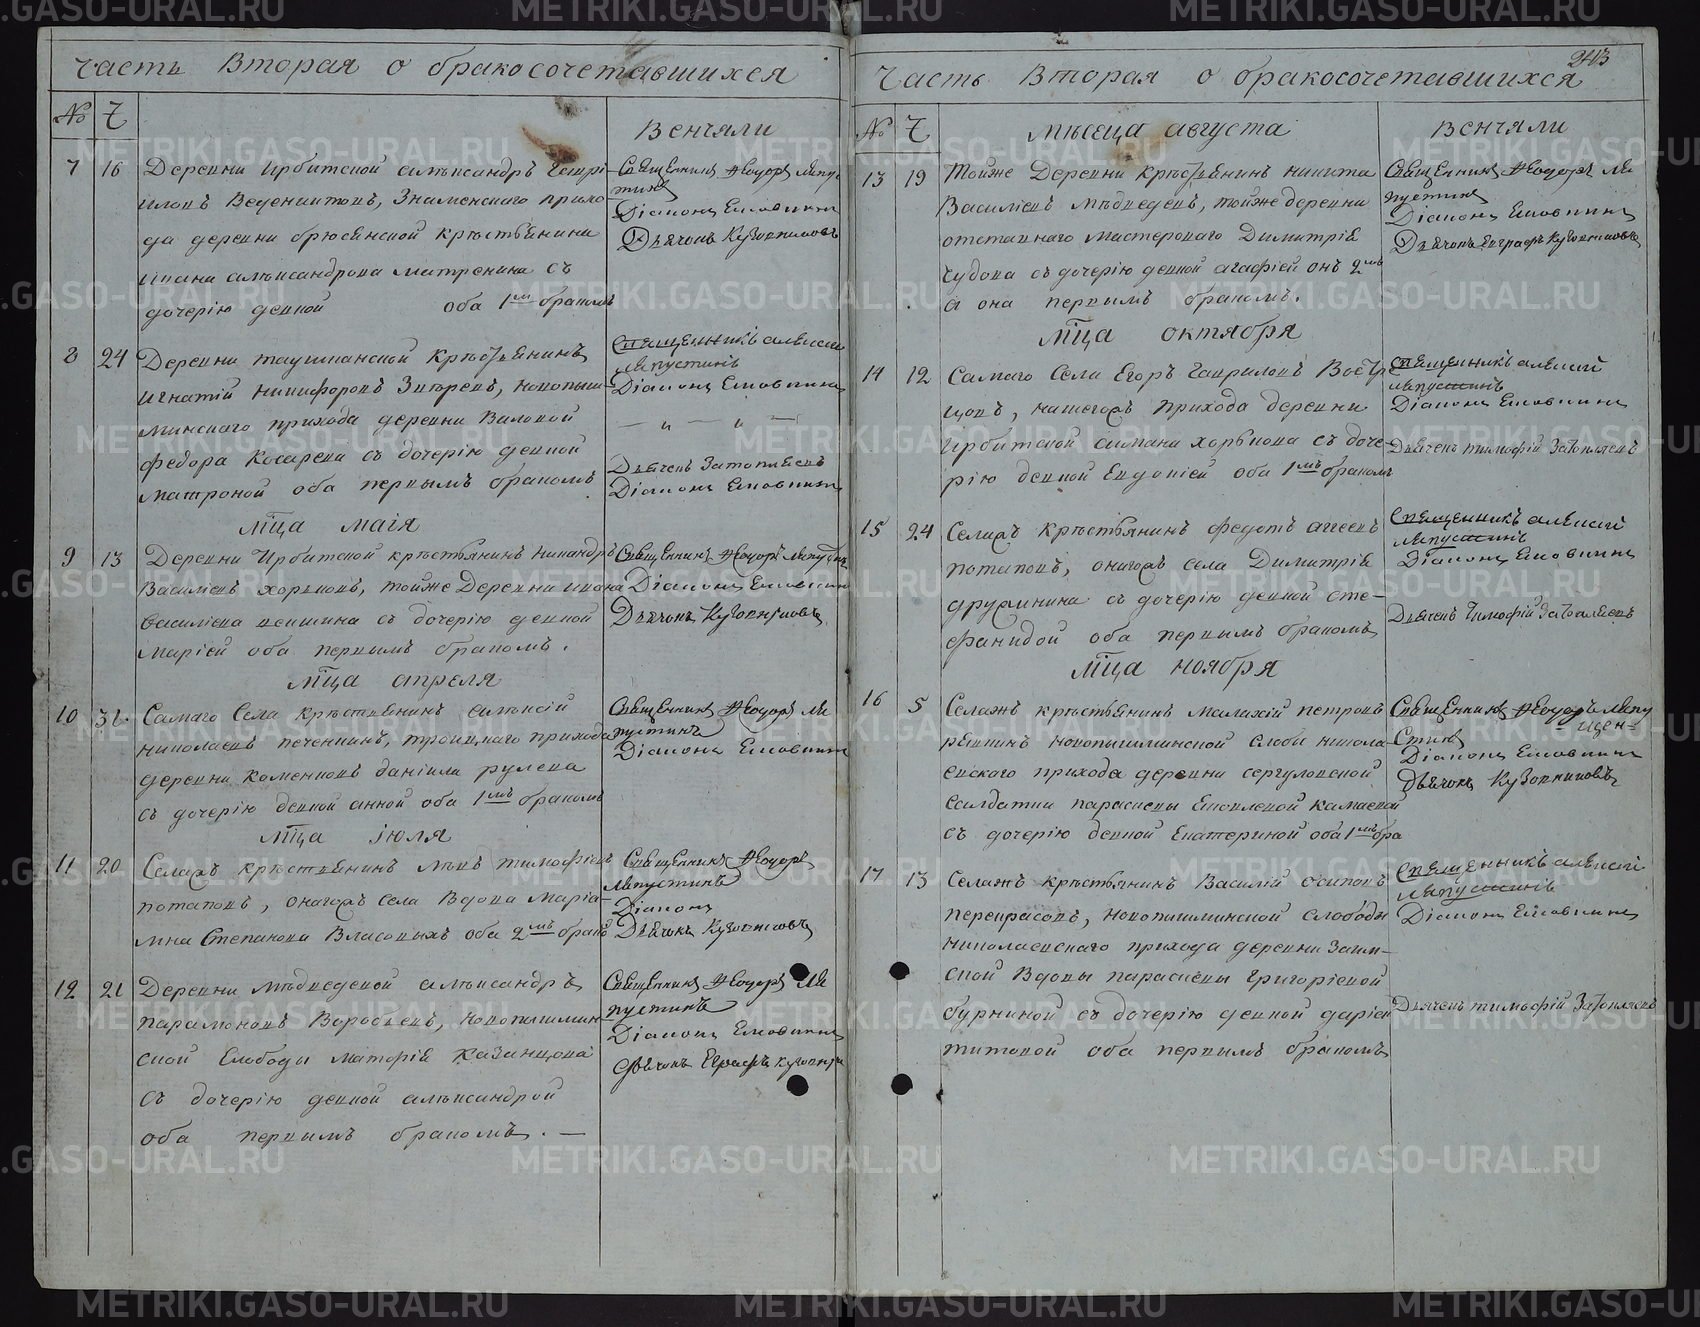 Часть Вторая о бракосочетавшихся
№ Ч
Венчали
7 16 Деревни Ирбитской Алѣксандръ Гаври
иловъ Ведениктовъ, Знаменского прихо
да деревни брюсянской крѣстьянина
ивана алѣксандрова матренина съ
дочерію девкой оба 1мъ бракомъ
Священникъ Ѳеодоръ Ляпу
стинъ
Діаконъ Словцинъ
Дьячокъ Кузовниковъ
8 24 Деревни таушканской Крѣстьянинъ
игнатій никифоровъ Звѣревъ, новопыш
минскаго прихода деревни Валовой
федора Косарева съ дочерію девкой
матроной оба первымъ бракомъ
Священникъ алексей
Ляпустинъ
Діаконъ
Дьячекъ Затопляевъ
Діаконъ
мца маія
9 13 Деревни Ирбитской крѣстьянинъ никандръ
Василіевъ хорьковъ, тойже Деревни ивана
Василіева векшина съ дочерію девкой
маріей оба первымъ бракомъ.
Священникъ Ѳеодоръ Ляпустинъ
Діаконъ
Дьячокъ Кузовниковъ
мца апреля
10 31. Самаго Села крѣстьянинъ алѣксій
николаевъ печенкинъ, троицкаго прихода
деревни каменковъ даніила рулева
съ дочерію девкой анной оба 1мъ бракомъ
Священникъ Ѳеодоръ Ля
пустинъ
Діаконъ
мца іюля
11 20 Селахъ крѣстьянинъ лѣвъ тимофіевъ
потаповъ, онагожъ села Вдова Маріа
мна Степанова Власовыхъ оба 2мъ брако
Священникъ Ѳеодоръ
Ляпустинъ
Діаконъ
Дьячокъ Кузовниковъ
12 21 Деревни мѣдведевой алѣксандръ
парамоновъ Воробьевъ, новопышмин
ской Слободы матофія казанцова
съ дочерію девкой алѣксандрой
оба первымъ бракомъ.
Священникъ Ѳеодоръ Ля
пустинъ
Діаконъ
Дьячокъ Еграфъ
243
Часть Вторая о бракосочетавшихся
№ Ч
Мѣсеца августа
Венчали
13 19 Тойже Деревни крѣстьянинъ никита
Василіевъ мѣдведевъ, тойже деревни
отставнаго мастероваго Димитрія
Чудова съ дочерію девкой агафіей онъ 2мъ
а она первымъ бракомъ.
Священникъ Ѳеодоръ Ля
пустинъ
Діаконъ
Дьячокъ Евграфъ Кузовниковъ
мца октября
14 12 Самаго Села Егоръ Гавриловъ
цовъ, нашегожъ прихода деревни
Ирбитской симана хорькова съ доче-
рію девкой Евдокіей оба 1мъ бракомъ
Священникъ алексій
Ляпустинъ
Діаконъ
Дьячекъ тимофій Затопляевъ
15 24 Селахъ крѣстьянинъ федотъ аггеевъ
потаповъ, онагожъ села Димитрія
дружинина съ дочерію девкой сте-
фанидой оба первымъ бракомъ
Священникъ алексій
Ляпустинъ
Діаконъ
Дьячекъ Тимофій Затопляевъ
мца ноября
16 5 Селажъ крѣстьянинъ малахій петровъ
рѣшкинъ новопышминской слоби никола-
евского прихода деревни сергуловской
салдатки парасковы камаевой
съ дочерію девкой Екатериной оба 1мъ бра
Священникъ Ѳеодоръ Ляпу
стинъ
Діаконъ
Дьячокъ Кузовниковъ
17 13 Селажъ крѣстьянинъ Василій осиповъ
перекрасовъ, новопышминской слободы
николаевскаго прихода деревни Заим-
ской Вдовы парасковы григоріевой
буркиной съ дочерію девкой даріей
титовой оба первымъ бракомъ
Священникъ алексій
Ляпустинъ
Діаконъ
Дьячекъ тимофій Затопляевъ
METRIKI.GASO-URAL.RU